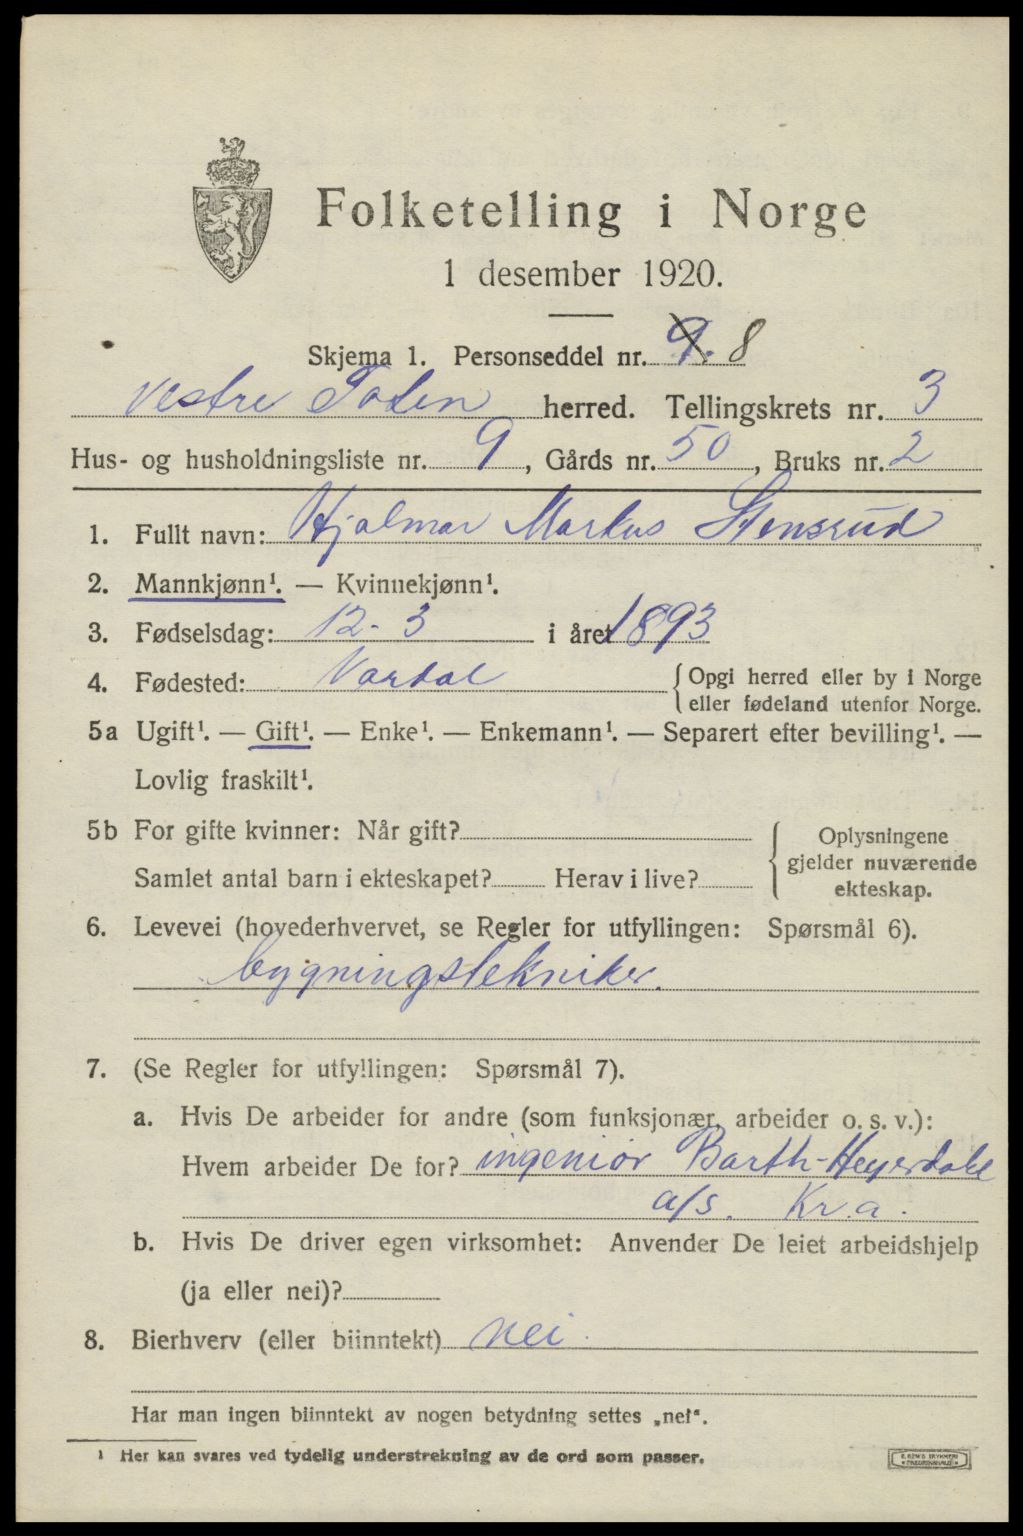 Folketelling i Norge
1 desember 1920.
Skjema 1. Personseddel nr. 9. 8
Vestre Toten herred. Tellingskrets nr. 3
Hus- og husholdningsliste nr. 9, Gårds nr. 50, Bruks nr. 2
1. Fullt navn: Hjalmar Markus Stensrud
2. Mannkjønn¹. — Kvinnekjønn¹.
3. Fødselsdag: 12-3 i året 1893
4. Fødested: Vardal { Opgi herred eller by i Norge
eller fødeland utenfor Norge.
5a Ugift¹. — Gift¹. — Enke¹. — Enkemann¹. — Separert efter bevilling¹. —
Lovlig fraskilt¹.
5b For gifte kvinner: Når gift?
Samlet antal barn i ekteskapet? Herav i live?
Oplysningene
gjelder nuværende
ekteskap.
6. Levevei (hovederhvervet, se Regler for utfyllingen: Spørsmål 6).
bygningstekniker.
7. (Se Regler for utfyllingen: Spørsmål 7).
a. Hvis De arbeider for andre (som funksjonær, arbeider o. s. v.):
Hvem arbeider De for? ingeniør Barth-Heyerdahl
a/s. Kr.a.
b. Hvis De driver egen virksomhet: Anvender De leiet arbeidshjelp
(ja eller nei)?
8. Bierhverv (eller biinntekt) nei.
Har man ingen biinntekt av nogen betydning settes „nei".
¹ Her kan svares ved tydelig understrekning av de ord som passer.